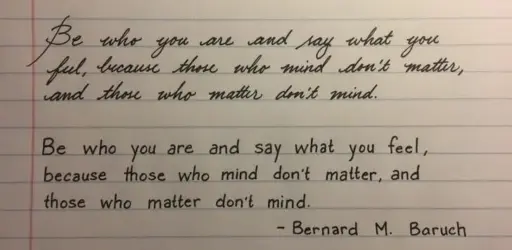 Be who you are and say what you
feel, because those who mind don't matter,
and those who matter don't mind.
Be who you are and say what you feel,
because those who mind don't matter, and
those who matter don't mind.
- Bernard M. Baruch